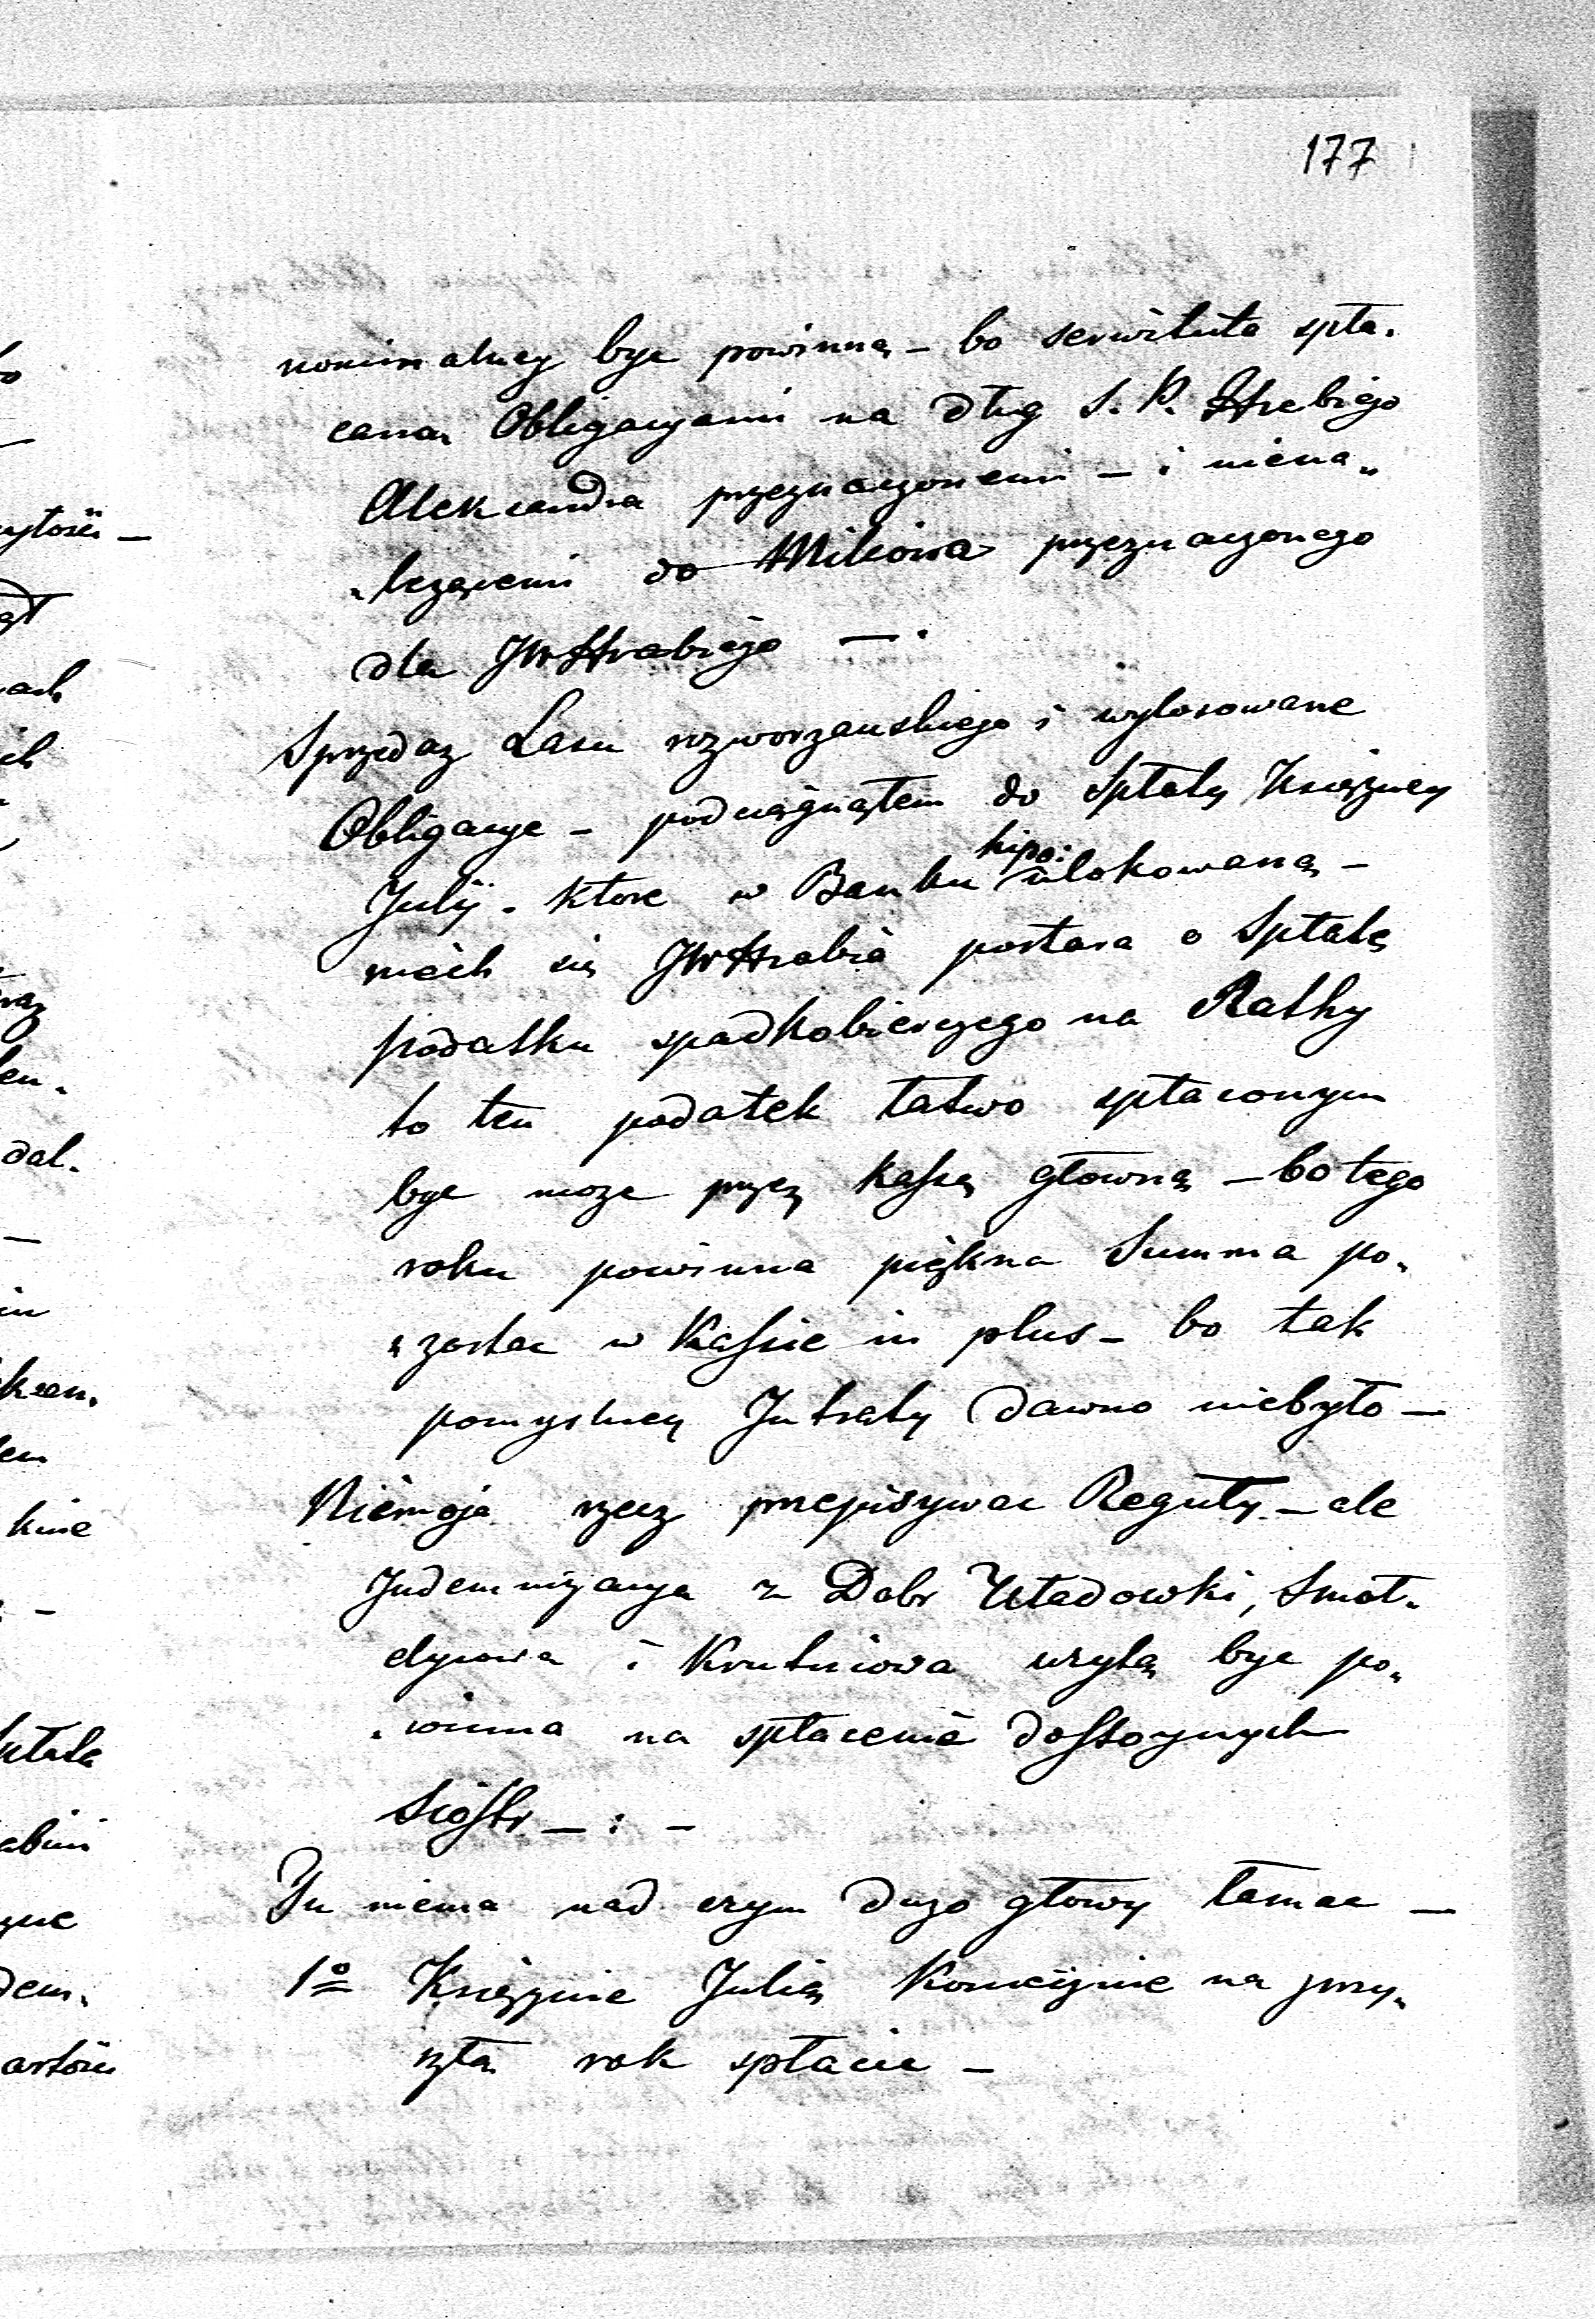 177
nominalney byc powinna – bo serwituta spła.
caną Obligacyami na dług S. P. Hrabiego
Aleksandra przeznaczonemi – i niena„
„lezącemi do Milcowa przeznaczonego
dla JWHrabiego –.
Sprzedaz Lasu rozworzanskiego i wylosowane
Obligacye – podciągnąłem do Spłaty Księzney
Julij. ktore w Banku hipo: ulokowaną –
niech się JWHrabia postara o Spłatę
podatku spadkobierczego na Ratky
to ten podatek łatwo spłaconym
byc moze przez Kassę głowną – bo tego
roku powinna piękna Summa po„
„zostac w Kassie in plus – bo tak
pomyslney Intraty dawno niebyło –
Niemoja rzecz przepisywac Reguły – ale
Indemnizacya z Dobr Uładowki, Smoł.
dyrowa i Krutniowa uzytą byc po„
„winna na spłacenie dostoynych
Siostr – : –
Tu niema nad czym duzo głowy łamac –
1o Księznie Julią Koniecznie na przy„
szła rok spłacic –
ytosci –
ach
ich
dal.
kie
artosci